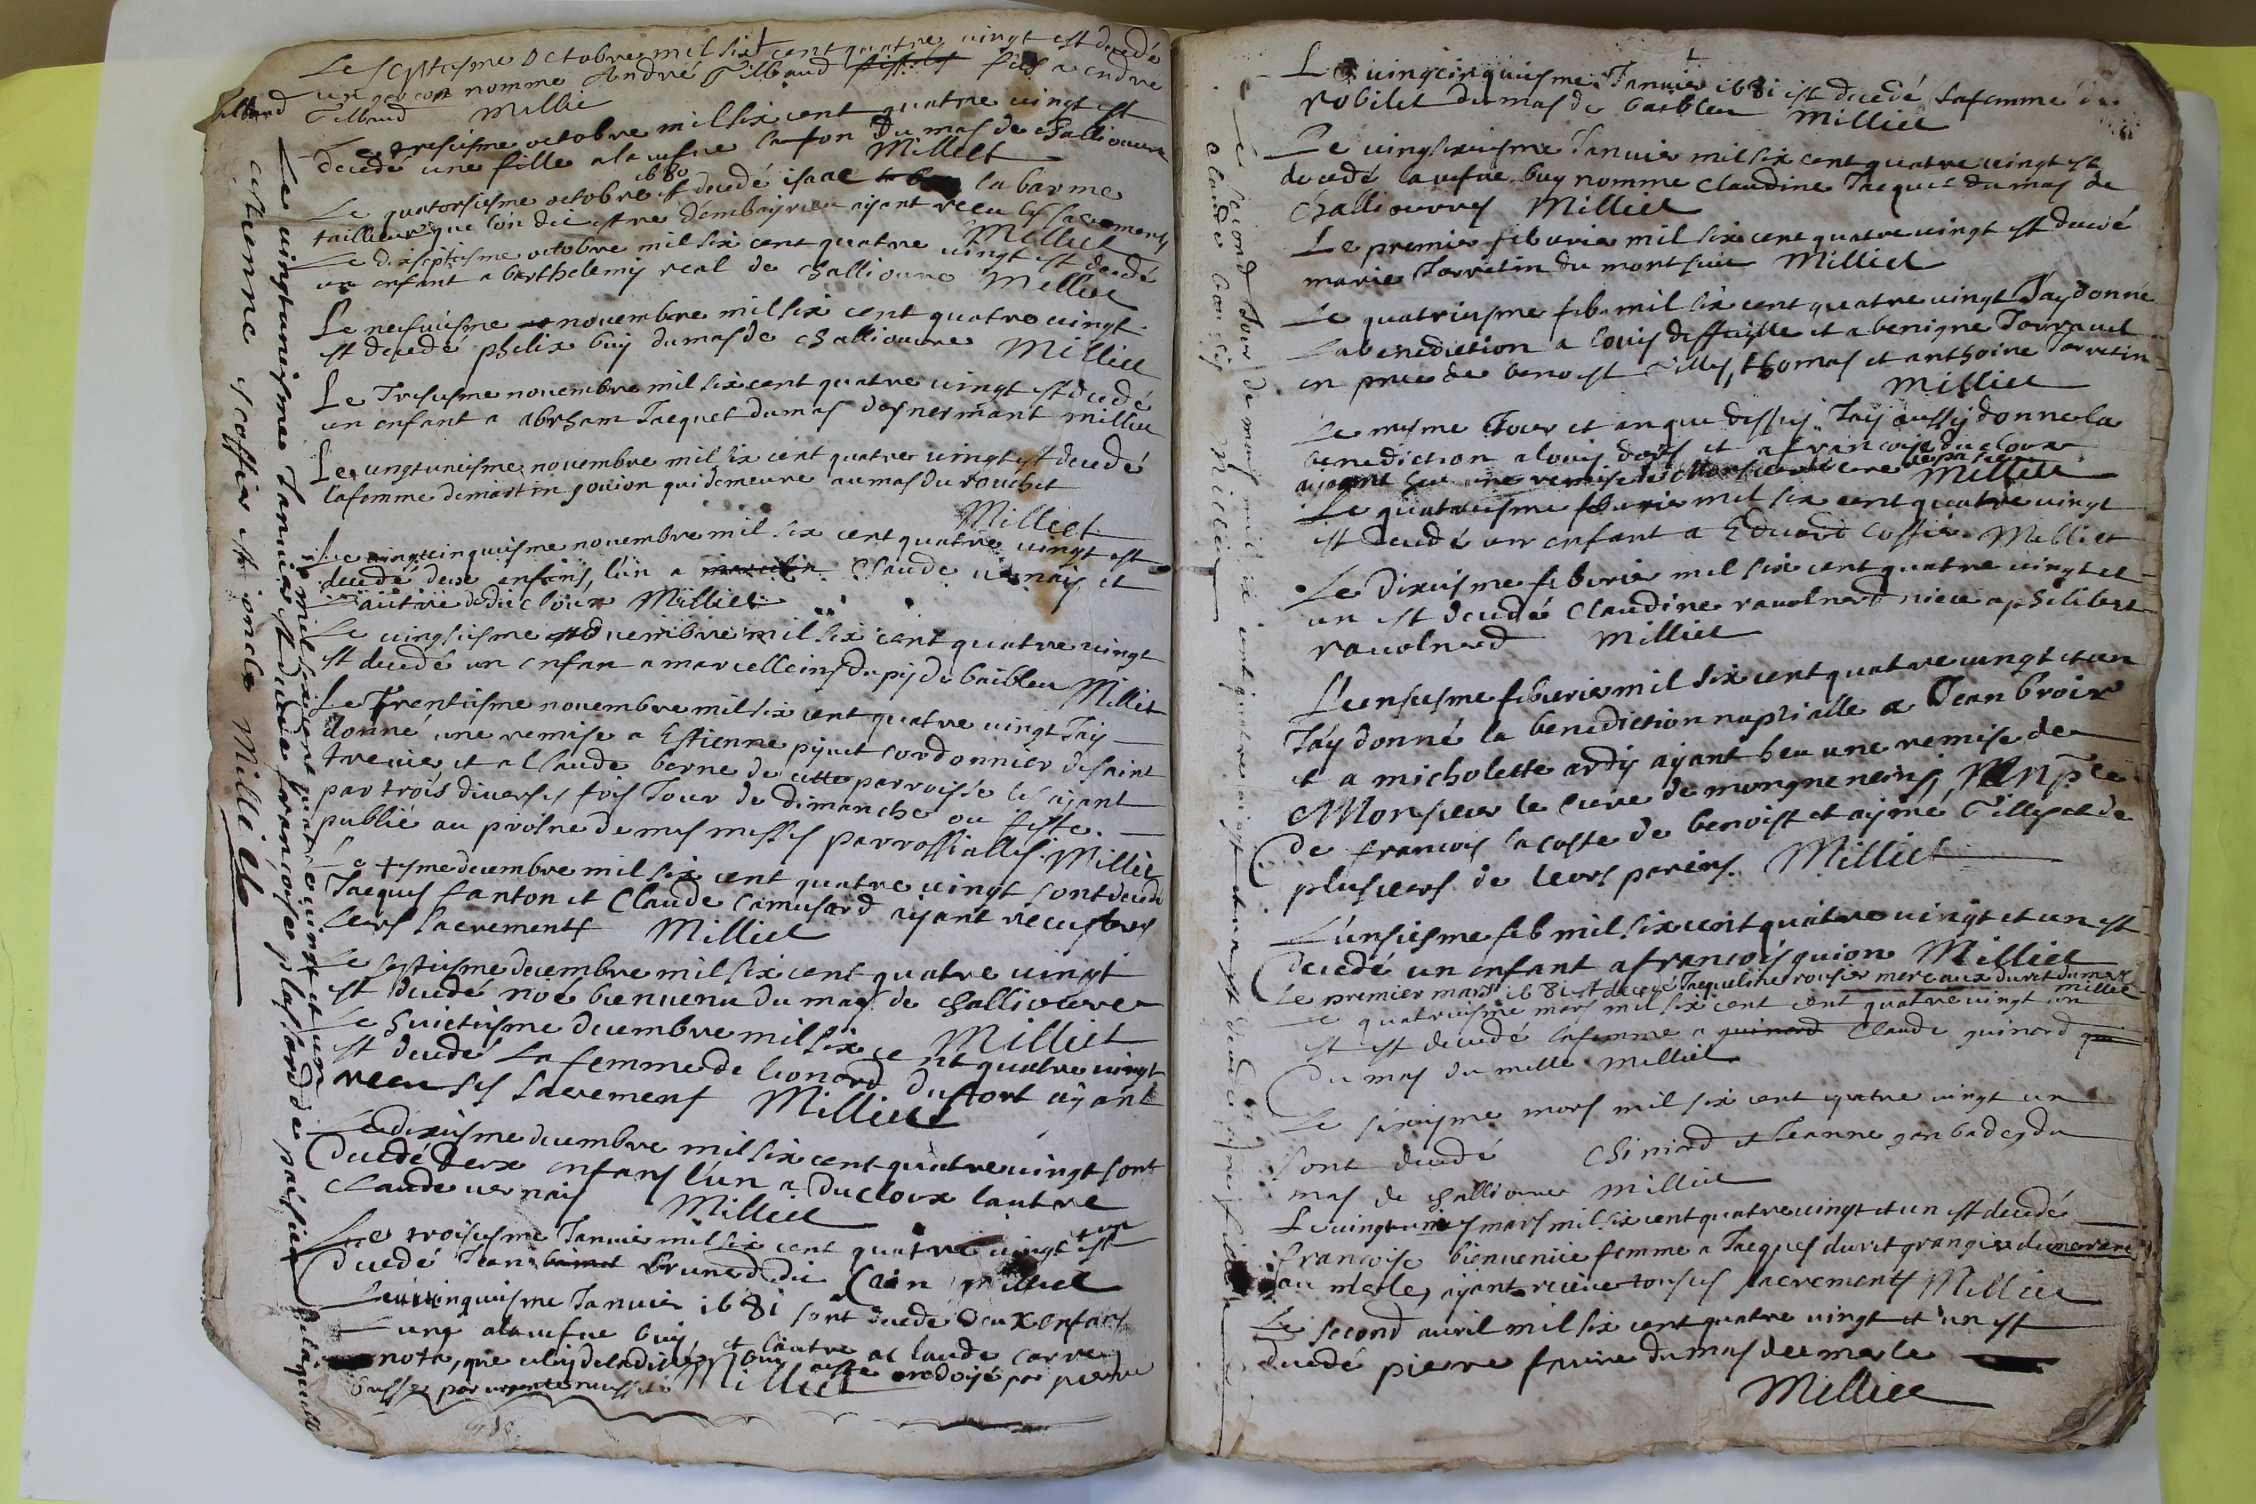 Le septiesme Octobre mil six cent quatre vingt est decedé
un garcon nomme André Tilbaud fils a endre
Tilbaud Millie
Le tresiesme octobre mil six cent quatre vingt est
decedé une fille a la vefve lafon du mas de challiouvre
Milliet
Le quatorsiesme octobre 1680 est decedé isaac la barme
tailleur que l'on dit estre d'embayrieu ayant receu les sacrements
Milliet
Le dixseptiesme octobre mil six cent quatre vingt est decedé
un enfant a barthelemy real de challiouvre Milliet
Le nefviesme novembre mil six cent quatre vingt
est decedé phelix buy du mas de challiouvre Milliet
Le Tresiesme novembre mil six cent quatre vingt est decedé
un enfant a abrham Jacquet du mas despermant milliet
Le vingtuniesme novembre mil six cent quatre vingt est decedé
la femme de martin goiion qui demeure au mas du rouchet
Milliet
Le vingtcinquiesme novembre mil six cent quatre vingt est
decedé deux enfans, l'un a Claude vernais et
l'autre a Milliet
Le vingtsiesme novembre mil six cent quatre vingt
est decedé un enfan a marcelleins du pij du baibleu Milliet
Le Trentiesme novembre mil six cent quatre vingt J'ay
donné une remise a Estienne piquet cordonnier de saint
trevie et a Claude berne de cette parroisse les ayant
par trois diverses fois Jour de dimanche ou feste
publié au prosne de mes messes parrossialles. Milliet
Le decembre mil six cent quatre vingt sont decedé
Jacques fanton et Claude Camusard ayant receu tous
leurs sacrements Milliet
Le septiesme decembre mil six cent quatre vingt
est decedé noé bienvenu du mas de challiouvre
Milliet
Le huictiesme decembre mil six cent quatre vingt
est decedé la femme de leonard dufort ayant
receu ses sacrement Milliet
Le dixiesme decembre mil six cent quatre vingt sont
decedé deux enfans l'un a ducloux lautre
Claude vernais Milliet
Le troisiesme Janvier mil six cent quatre vingt un est
decedé Jean brunet dit Cain milliet
Le cinquiesme Janvier 1681 sont decedé deux enfans
l'ung a la vefve buy, et lautre a claude carre
nota, que celuy de ladite buy a esté ondoyé par pierre
par urgente necessité Milliet
Le vingtuniesme Janvier mil six cent quatre vingt et un
est decedée françoise plassard de paresien de laquelle
estienne scoffier est oncle Milliet
Tilbaud
Le vingtcinquiesme Janvier 1681 est decedé la femme de
robilet du mas de baibleu Milliet
Le vingtsixiesme Janvier mil six cent quatre vingt est
decedé la vefve buy nomme Claudine Jacquet du mas de
Challiouvres Milliet
Le premier febvrier mil six cent quatre vingt est decedé
marie Jarretin du montsuir Milliet
Le quatriesme feb. mil six cent quatre vingt J'ay donné
la benediction a louis deffaisse et a benigne Tarravel
en presence de benoist Tilles, thomas et anthoine Jarretin
Milliet
Le mesme Jour et an que dessus J'ay aussy donne la
benediction a louis dars et a francoise du cloux
ayant heu une remise de Monsieur le cure
Milliet
Le quatriesme febvrier mil six cent quatre vingt
est decedé un enfant a Edvard Cossier Milliet
Le dixiesme febvrier mil six cent quatre vingt et
un est decedé Claudine ravolnerd niece a philibert
ravolnerd Milliet
L'unsiesme febvrier mil six cent quatre vingt et un
J'ay donné la benediction nuptialle a Jean broix
et a micholette ardy ayant heu une remise de
Monsieur le cure de mongneneins, en presence
de francois lacoste de benoist et aymé Tilles et de
plusieurs de leurs parens. Milliet
L'unsiesme feb mil six cent quatre vingt et un est
decedé un enfant a françois guion Milliet
Le premier mars 1681 est decede Jacqueline rousier mere aux duret du mas
Milliet
Le quatriesme mars mil six cent cent quatre vingt un
est est decedé la femme a Claude guinard
du mas du melle Milliet
Le sixiesme mars mil six cent quatre vingt un
sont decedé Chinard et Jeanne ganbades du
mas de challiouvre Milliet
Le vingtunies mars mil six cent quatre vingt et un est decedé
francoise bienvenue femme a Jacques duret granger
au merle, ayant receue tous ses sacrements Milliet
Le second avril mil six cent quatre vingt et un est
decedé pierre favre du mas du merle
Milliet
Le second Jour de mars mil six cent quatre vingt et un est decedé une fille a
claude Milliet